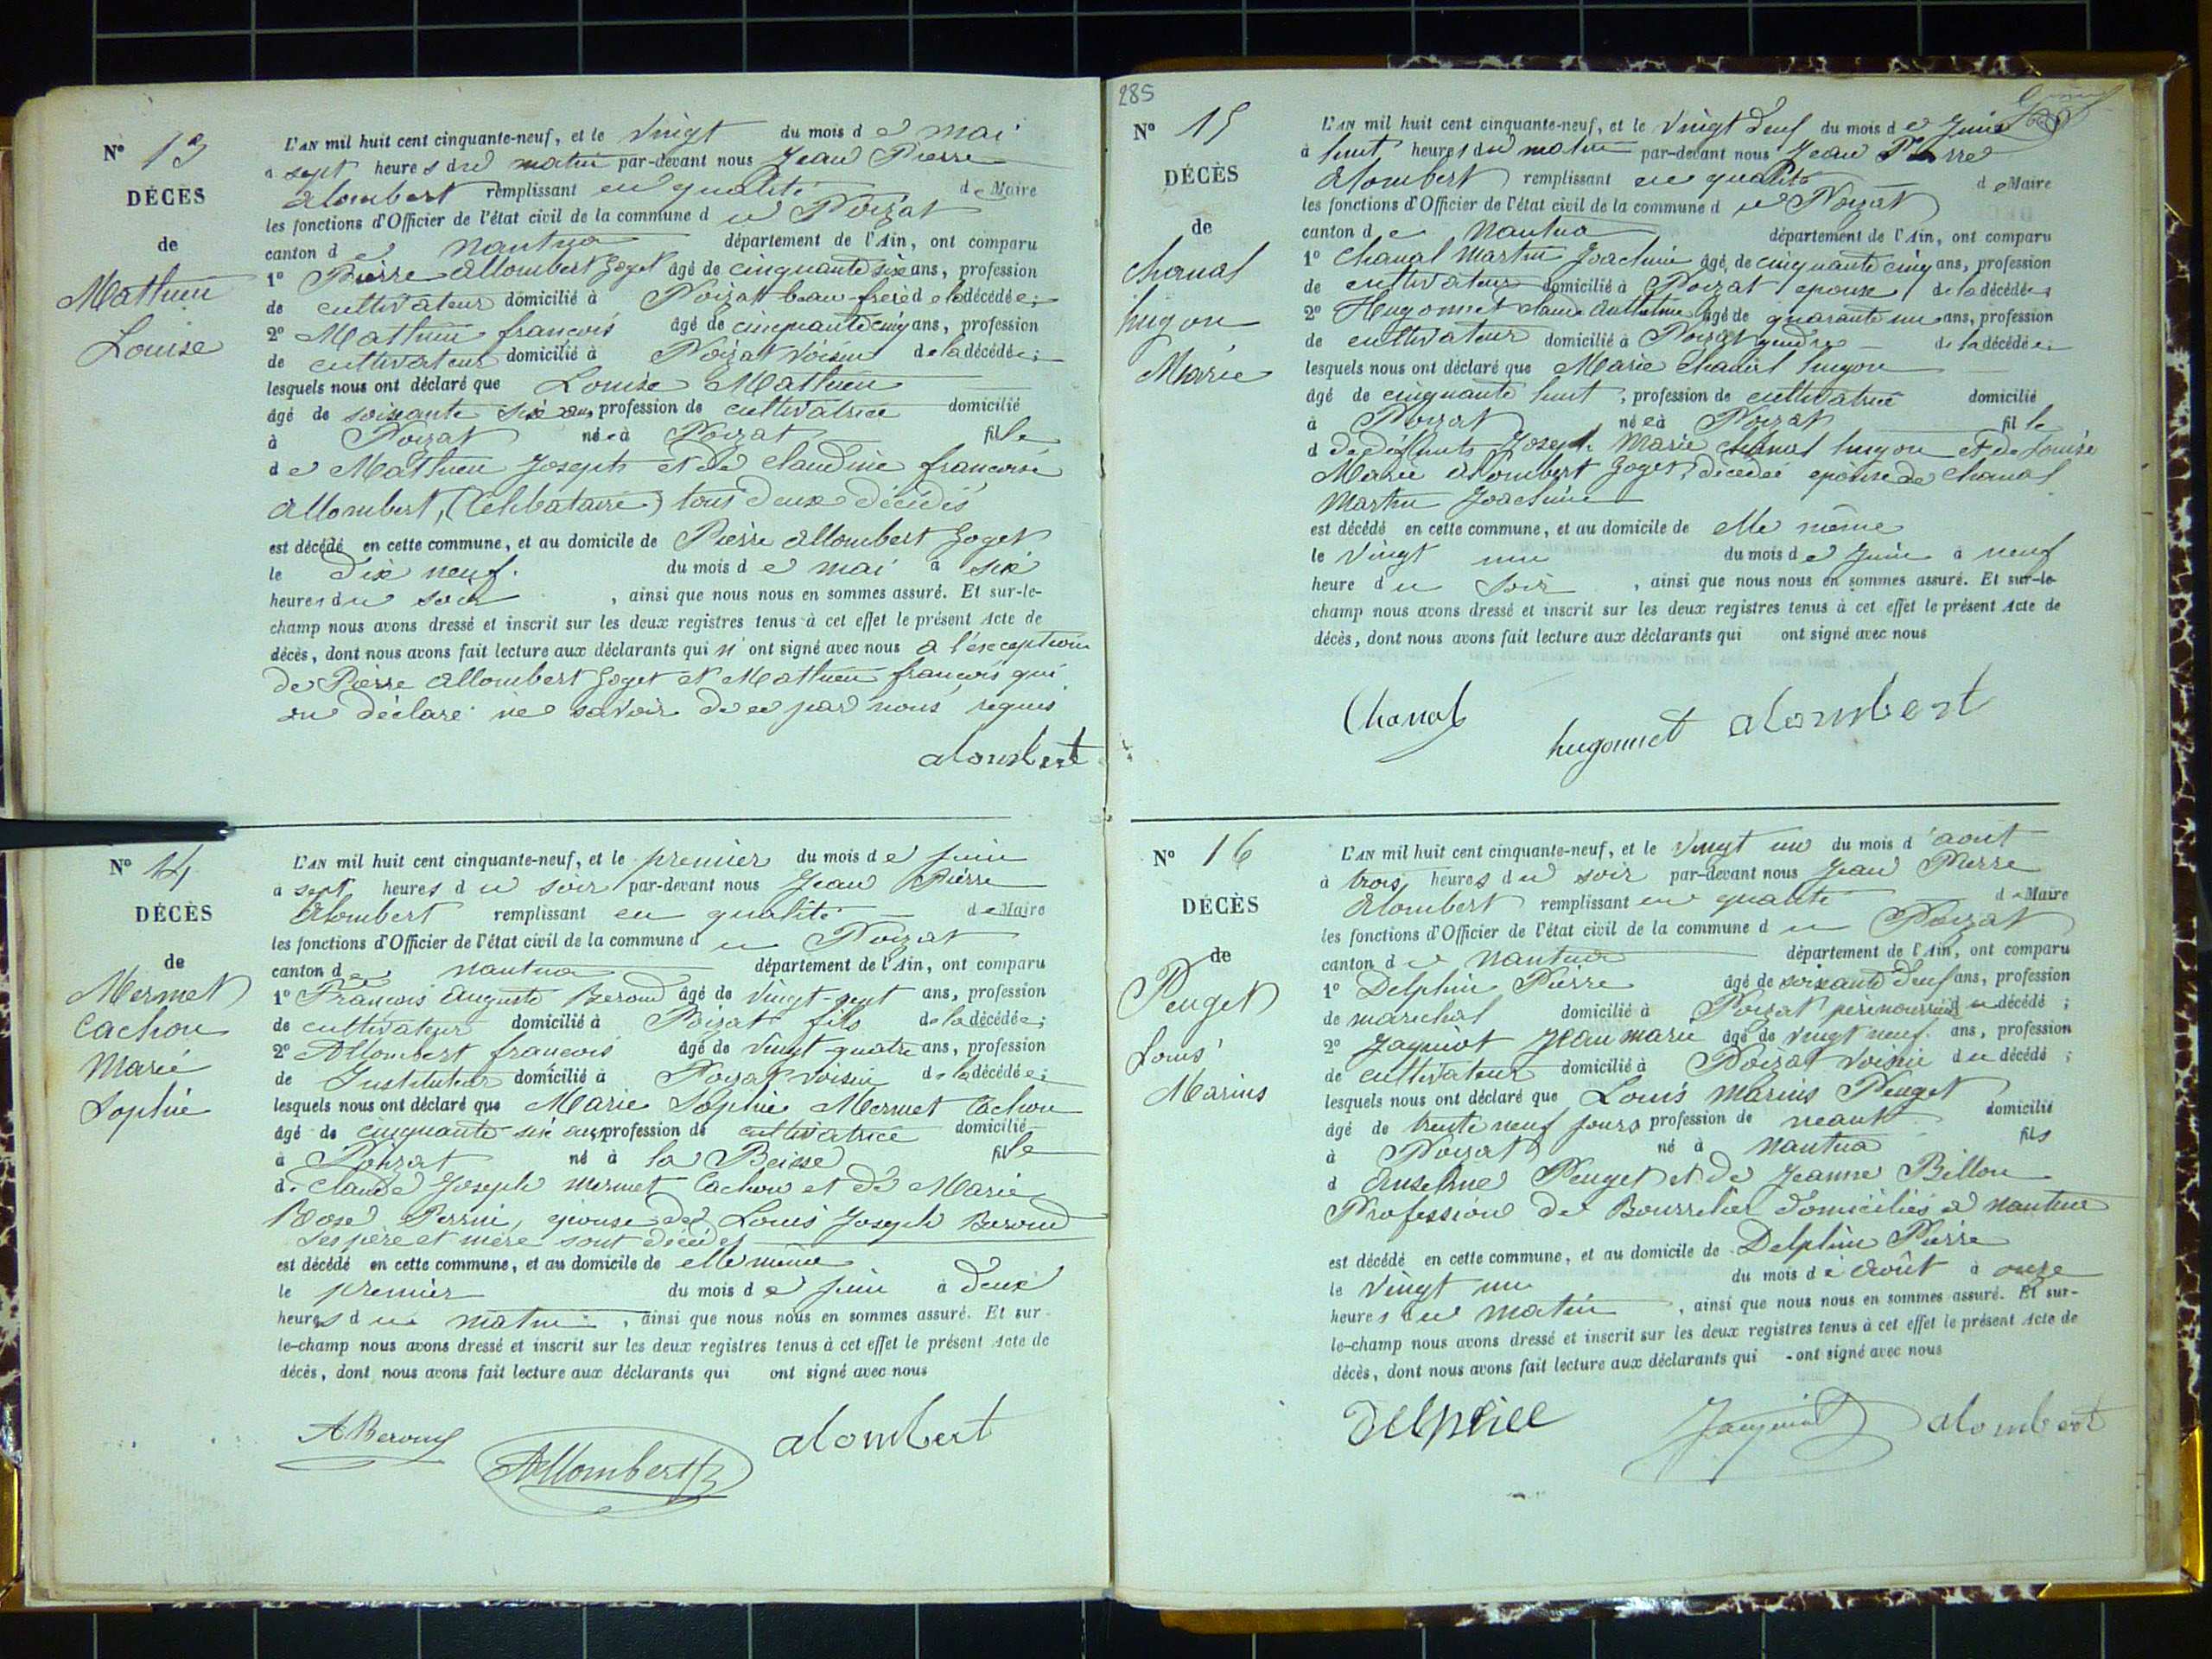 N° 13
DÉCÈS
de
Mathieu
Louise
L'AN mil huit cent cinquante-neuf, et le vingt du mois de mai
à sept heures du matin par-devant nous Jean Pierre
alombert remplissant en qualité de Maire
les fonctions d'Officier de l'état civil de la commune du Poizat
canton de nantua département de l'Ain, ont comparu
1° Pierre allombert goget âgé de cinquante six ans, profession
de cultivateur domicilié à Poizat beau-frère de la décédée;
2° Mathieu françois âgé de cinquante cinq ans, profession
de cultivateur domicilié à Poizat voisin de la décédée;
lesquels nous ont déclaré que Louise Mathieu
âgé de soixante six ans, profession de cultivatrice domicilié
à Poizat née à Poizat fille
de Mathieu Joseph et de claudine françoise
allombert, (Célibataire) tous deux décédés
est décédé en cette commune, et au domicile de Pierre allombert goget
le dix neuf. du mois de mai à six
heures du soir, ainsi que nous nous en sommes assuré. Et sur-le-
champ nous avons dressé et inscrit sur les deux registres tenus à cet effet le présent Acte de
décès, dont nous avons fait lecture aux déclarants qui n'ont signé avec nous a l'exception
de Pierre allombert goget et Mathieu françois qui
on déclaré ne savoir de ce par nous requis
alombert
N° 14
DÉCÈS
de
Mermet
Cachon
Marie
Sophie
L'AN mil huit cent cinquante-neuf, et le premier du mois de juin
à sept heures du soir par-devant nous Jean Pierre
alombert remplissant en qualité de Maire
les fonctions d'Officier de l'état civil de la commune du Poizat
canton de nantua département de l'Ain, ont comparu
1° François auguste Beroud âgé de vingt-sept ans, profession
de cultivateur domicilié à Poizat fils de la décédée;
2° Allombert françois âgé de vingt-quatre ans, profession
de Instituteur domicilié à Poizat voisin de la décédée;
lesquels nous ont déclaré que Marie Sophie Mermet Cachon
âgé de cinquante six ans, profession de cultivatrice domicilié
à Poizat né à la fille
de Claude Joseph mermet Cachon et de Marie
Rose Perrin, epouse de Louis Joseph Beroud
Ses père et mère sont décédés
est décédé en cette commune, et au domicile de elle même
le premier du mois de juin à deux
heures du matin, ainsi que nous nous en sommes assuré. Et sur-
le-champ nous avons dressé et inscrit sur les deux registres tenus à cet effet le présent Acte de
décès, dont nous avons fait lecture aux déclarants qui ont signé avec nous
A Beroud
Allombert
alombert
285
N° 15
DÉCÈS
de
chanal
hugon
Marie
L'AN mil huit cent cinquante-neuf, et le vingt deux du mois de Juin
à huit heures du matin par-devant nous Jean Pierre
Alombert remplissant en qualité de Maire
les fonctions d'Officier de l'état civil de la commune du Poizat
canton de nantua département de l'Ain, ont comparu
1° Chanal Martin Joachim âgé de cinquante cinq ans, profession
de cultivateur domicilié à Poizat epoux de la décédée;
2° Hugonnet claude anthelme âgé de quarante un ans, profession
de cultivateur domicilié à Poizat gendre de la décédée;
lesquels nous ont déclaré que Marie Chanal hugon
âgé de cinquante huit, profession de cultivatrice domicilié
à Poizat née à Poizat fille
d de défunts Joseph Marie chanal hugon et de Louise
Marie alombert goget, décédée epouse de chanal
Martin Joachim
est décédé en cette commune, et au domicile de elle même
le vingt un du mois de Juin à neuf
heure du soir, ainsi que nous nous en sommes assuré. Et sur-le-
champ nous avons dressé et inscrit sur les deux registres tenus à cet effet le présent Acte de
décès, dont nous avons fait lecture aux déclarants qui ont signé avec nous
Chanal
hugonnet
alombert
N° 16
DÉCÈS
de
Peuget
Louis
Marius
L'AN mil huit cent cinquante-neuf, et le vingt un du mois d'aout
à trois heures du soir par-devant nous Jean Pierre
Alombert remplissant en qualité de Maire
les fonctions d'Officier de l'état civil de la commune du Poizat
canton de Nantua département de l'Ain, ont comparu
1° Delphin Pierre âgé de soixante deux ans, profession
de marechal domicilié à Poizat père nourricier du décédé;
2° Jaquiot Jean marie âgé de vingt neuf. ans, profession
de cultivateur domicilié à Poizat voisin du décédé;
lesquels nous ont déclaré que Louis Marius Peuget
âgé de trente neuf jours profession de neant domicilié
à Poizat né à nantua fils
d Anselme Peuget et de Jeanne Billon
Profession de Bourrelier domiciliés a nantua
est décédé en cette commune, et au domicile de Delphin Pierre
le vingt un du mois de août à onze
heures du matin, ainsi que nous nous en sommes assuré. Et sur-
le-champ nous avons dressé et inscrit sur les deux registres tenus à cet effet le présent Acte de
décès, dont nous avons fait lecture aux déclarants qui - ont signé avec nous
Jaquiot
alombert